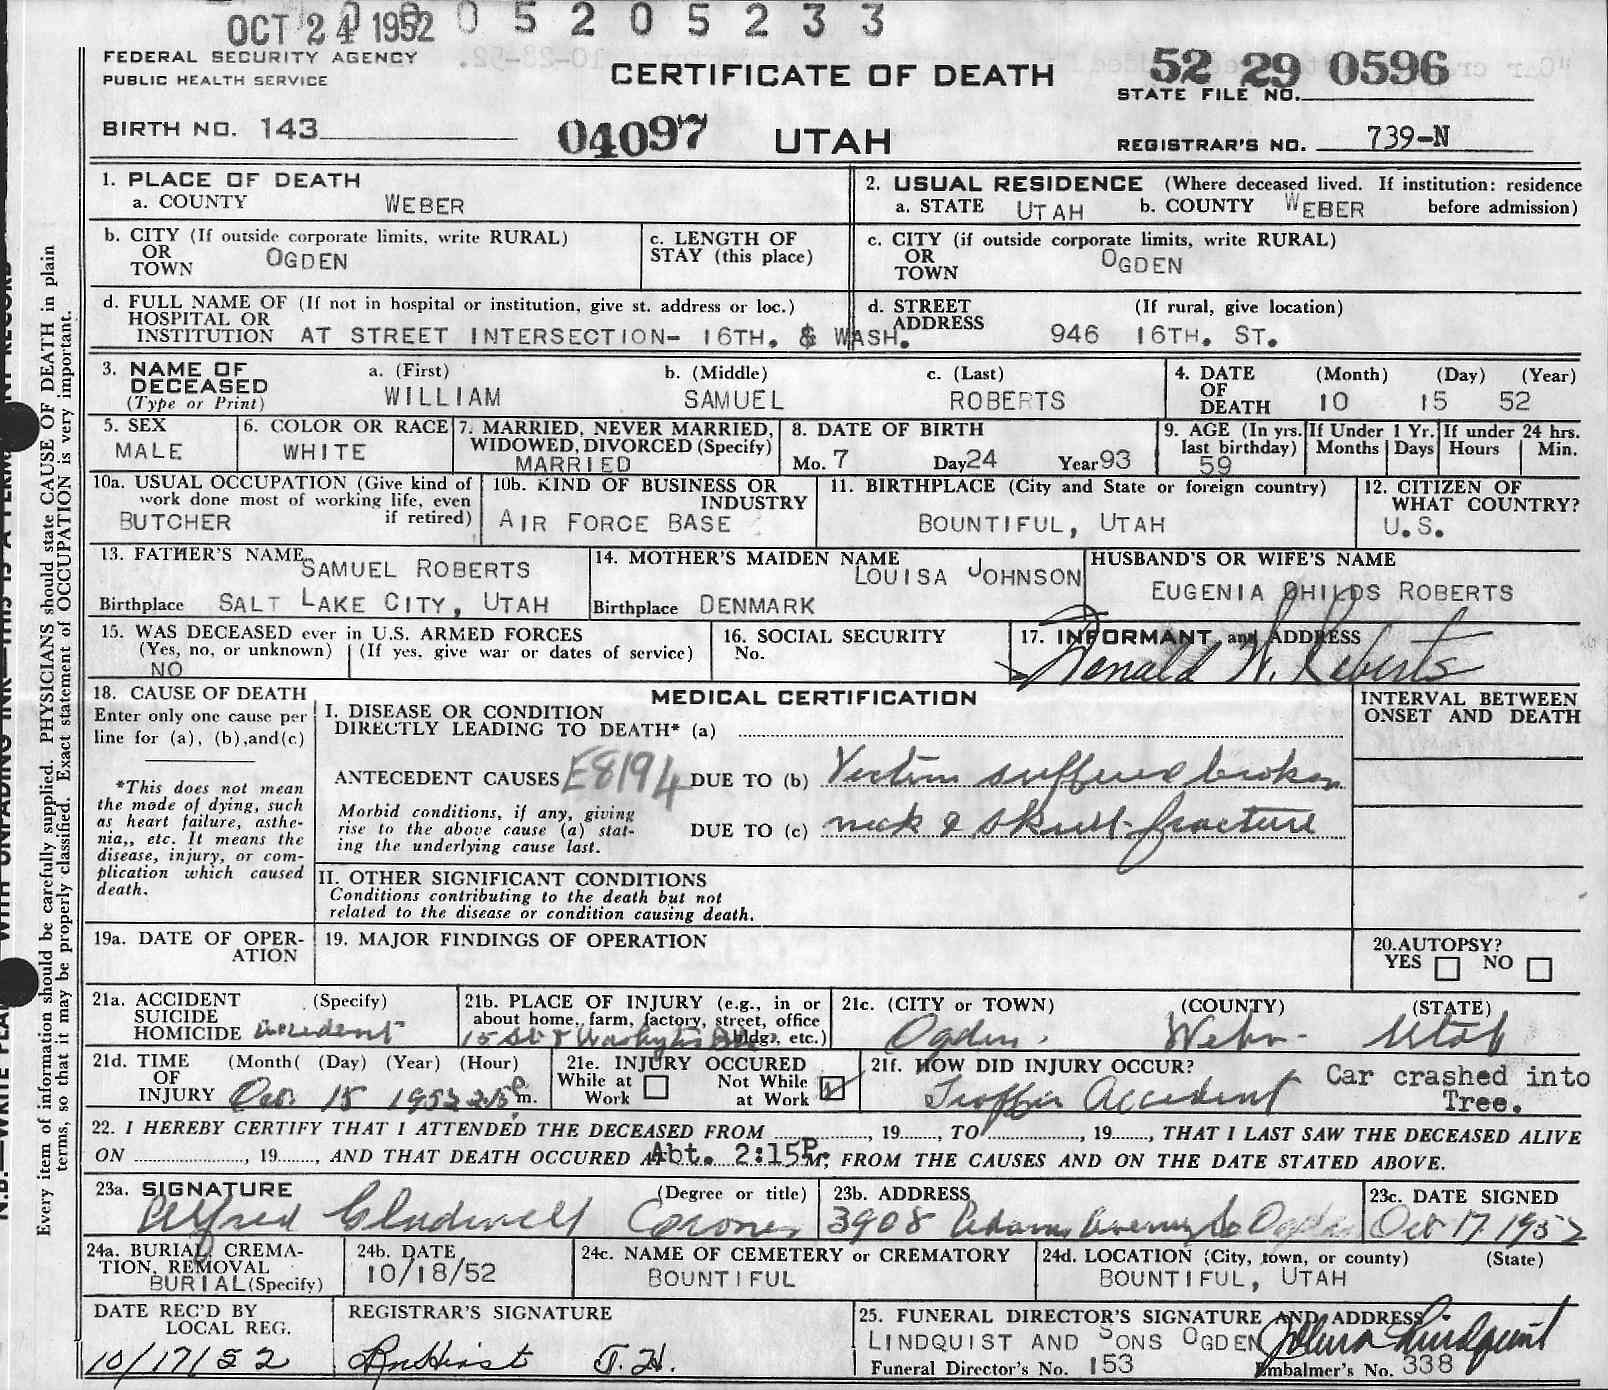 OCT 24 1952 0 5 2 0 5 2 3 3
FEDERAL SECURITY AGENCY
PUBLIC HEALTH SERVICE
CERTIFICATE OF DEATH
52 29 0596
STATE FILE NO.
BIRTH NO. 143
04097
UTAH
REGISTRAR'S NO. 739-N
1. PLACE OF DEATH
a. COUNTY WEBER
2. USUAL RESIDENCE (Where deceased lived. If institution: residence
a. STATE UTAH b. COUNTY WEBER before admission)
b. CITY (If outside corporate limits, write RURAL)
OR
TOWN
OGDEN
c. LENGTH OF
STAY (this place)
c. CITY (if outside corporate limits, write RURAL)
OR
TOWN
OGDEN
d. FULL NAME OF (If not in hospital or institution, give st. address or loc.)
HOSPITAL OR
INSTITUTION AT STREET INTERSECTION- 16TH. & WASH.
d. STREET (If rural, give location)
ADDRESS
946 16TH. ST.
3. NAME OF
DECEASED
(Type or Print)
a. (First)
WILLIAM
b. (Middle)
SAMUEL
c. (Last)
ROBERTS
4. DATE
OF
DEATH
(Month) (Day) (Year)
10 15 52
5. SEX
MALE
6. COLOR OR RACE
WHITE
7. MARRIED, NEVER MARRIED,
WIDOWED, DIVORCED (Specify)
MARRIED
8. DATE OF BIRTH
Mo. 7 Day 24 Year 93
9. AGE (In yrs.
last birthday)
59
If Under 1 Yr.
Months Days
If under 24 hrs.
Hours Min.
10a. USUAL OCCUPATION (Give kind of
work done most of working life, even
if retired)
BUTCHER
10b. KIND OF BUSINESS OR
INDUSTRY
AIR FORCE BASE
11. BIRTHPLACE (City and State or foreign country)
BOUNTIFUL, UTAH
12. CITIZEN OF
WHAT COUNTRY?
U.S.
13. FATHER'S NAME
SAMUEL ROBERTS
Birthplace SALT LAKE CITY, UTAH
14. MOTHER'S MAIDEN NAME
LOUISA JOHNSON
Birthplace DENMARK
HUSBAND'S OR WIFE'S NAME
EUGENIA CHILDS ROBERTS
15. WAS DECEASED ever in U.S. ARMED FORCES
(Yes, no, or unknown) (If yes, give war or dates of service)
NO
16. SOCIAL SECURITY
No.
17. INFORMANT and ADDRESS
Donald W. Roberts
18. CAUSE OF DEATH
Enter only one cause per
line for (a), (b), and (c)
*This does not mean
the mode of dying, such
as heart failure, asthe-
nia,, etc. It means the
disease, injury, or com-
plication which caused
death.
MEDICAL CERTIFICATION
INTERVAL BETWEEN
ONSET AND DEATH
I. DISEASE OR CONDITION
DIRECTLY LEADING TO DEATH* (a)
ANTECEDENT CAUSES E8194 DUE TO (b) Victim suffered broken
Morbid conditions, if any, giving
rise to the above cause (a) stat-
ing the underlying cause last.
DUE TO (c) neck & skull fracture
II. OTHER SIGNIFICANT CONDITIONS
Conditions contributing to the death but not
related to the disease or condition causing death.
19a. DATE OF OPER-
ATION
19. MAJOR FINDINGS OF OPERATION
20. AUTOPSY?
YES NO
21a. ACCIDENT (Specify)
SUICIDE
HOMICIDE accident
21b. PLACE OF INJURY (e.g., in or
about home, farm, factory, street, office
bldg., etc.)
15 St &
21c. (CITY or TOWN) (COUNTY) (STATE)
Ogden. Weber Utah
21d. TIME (Month) (Day) (Year) (Hour)
OF
INJURY Oct. 15 1952 2:15 p m.
21e. INJURY OCCURED
While at
Work
Not While
at Work
21f. HOW DID INJURY OCCUR?
Traffic Accident
Car crashed into
Tree.
22. I HEREBY CERTIFY THAT I ATTENDED THE DECEASED FROM , 19 , TO , 19 , THAT I LAST SAW THE DECEASED ALIVE
ON , 19 , AND THAT DEATH OCCURED AT Abt. 2:15P. M, FROM THE CAUSES AND ON THE DATE STATED ABOVE.
23a. SIGNATURE (Degree or title)
Alfred Gladwell Coroner
23b. ADDRESS
3908 Adams Avenue So Ogden
23c. DATE SIGNED
Oct 17 1952
24a. BURIAL, CREMA-
TION, REMOVAL
BURIAL (Specify)
24b. DATE
10/18/52
24c. NAME OF CEMETERY or CREMATORY
BOUNTIFUL
24d. LOCATION (City, town, or county) (State)
BOUNTIFUL, UTAH
DATE REC'D BY
LOCAL REG.
10/17/52
REGISTRAR'S SIGNATURE
25. FUNERAL DIRECTOR'S SIGNATURE AND ADDRESS
LINDQUIST AND SONS OGDEN
Funeral Director's No. 153 Embalmer's No. 338
Every item of information should be carefully supplied. PHYSICIANS should state CAUSE OF DEATH in plain
terms, so that it may be properly classified. Exact statement of OCCUPATION is very important.